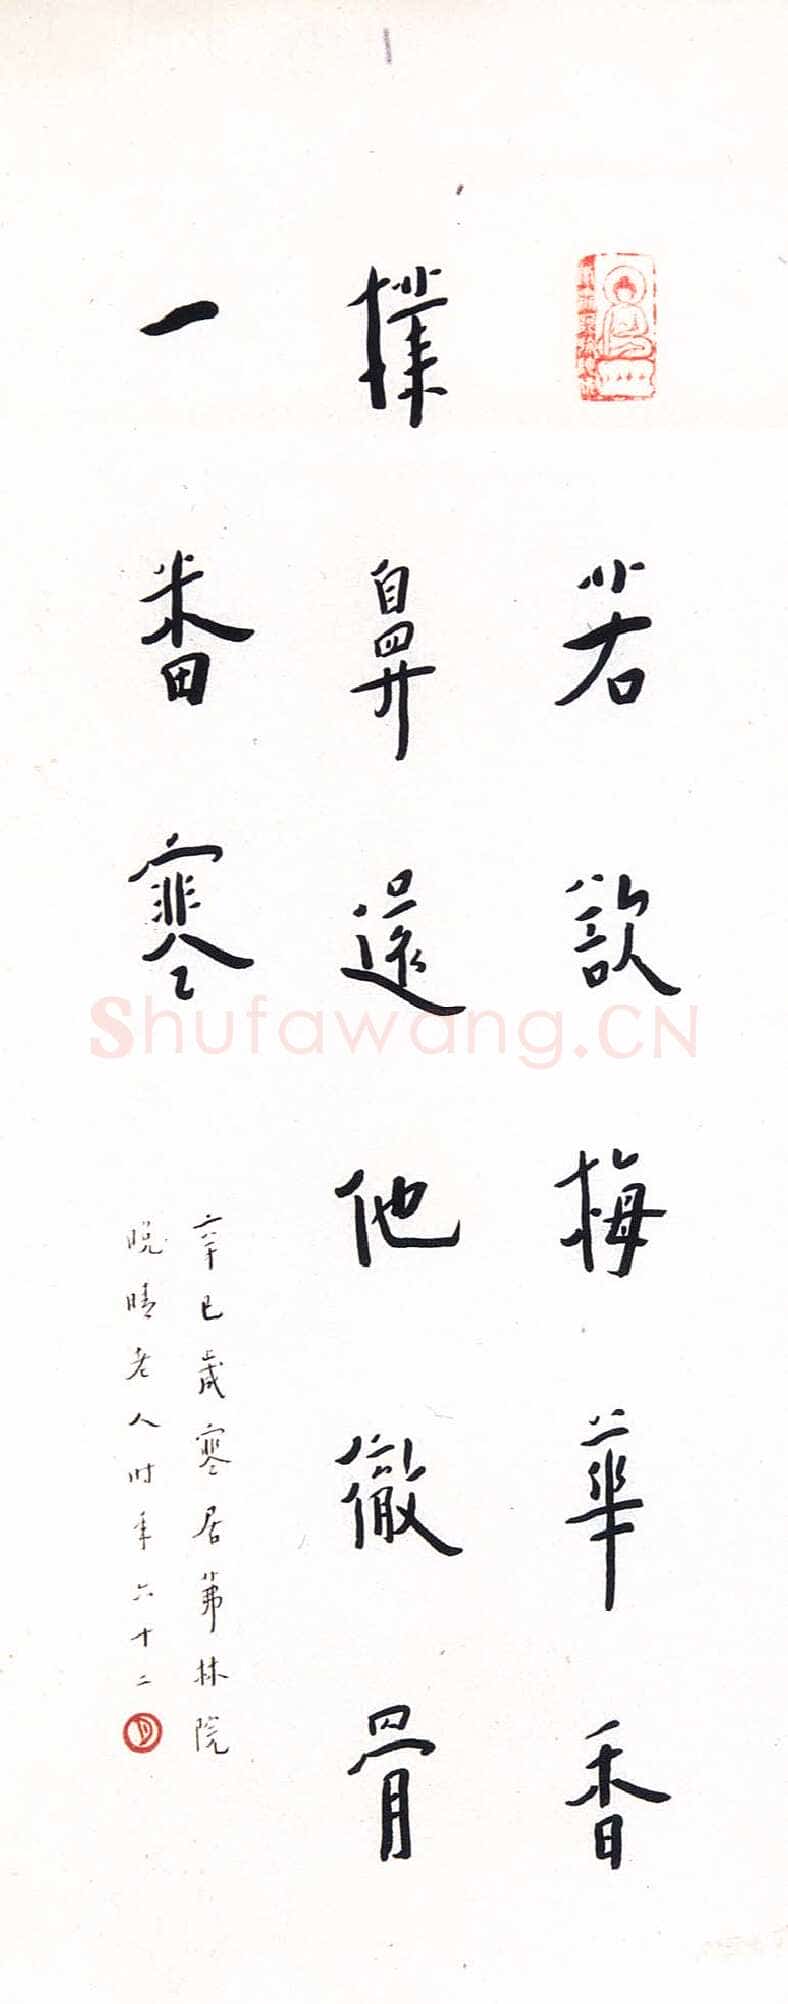 若欲梅華香
撲鼻還他徹骨
一番寒
辛巳歲寒居茀林院
晚晴老人时年六十二
Shufawang.CN